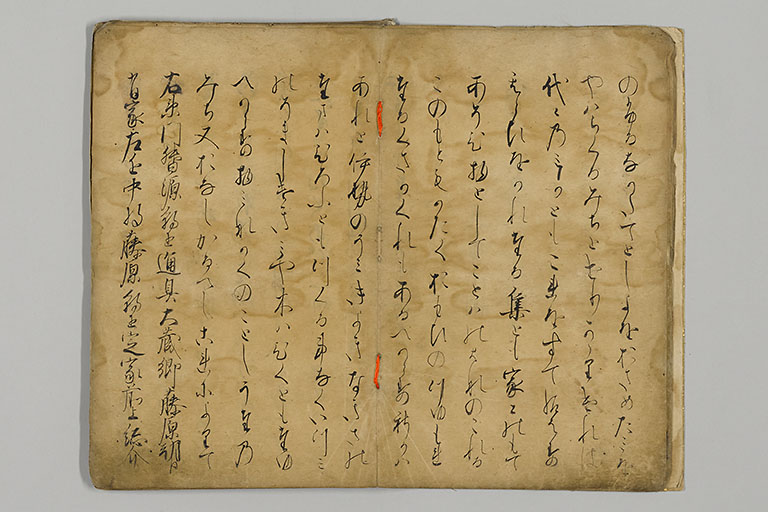 のなかたちとしよをおさめたみを
やはらくるみちとせりかゝりけれは
代々のみかともこれをすてたまはす
えらひをかれたる集とも家々のもて
あそひ物としてことはの花のこれる
このもともかたくおもひのつゆもれ
たるくさかくれもあるへからすしかは
あれと伊勢のうみきよきなきさの
たまはひろふともつくる事なくいつみ
のそましけきみや木はひくともたゆ
へからす物みなかくのことしうたの
みち又おなしかるへしこれによりて
右衛門督源朝臣通具大蔵卿藤原朝臣
有家左近中将藤原朝臣定家前上総介